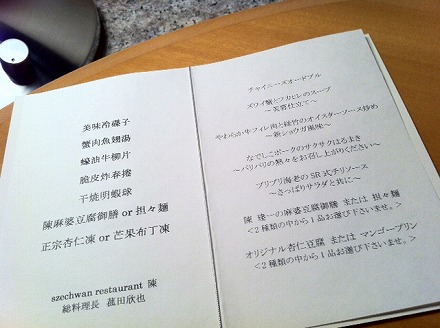 美味冷碟子
蟹肉魚翅湯
蠔油牛柳片
脆皮炸春捲
干焼明蝦球
陳麻婆豆腐御膳 or 担々麺
正宗杏仁凍 or 芒果布丁凍
szechwan restaurant 陳
総料理長 菰田欣也
チャイニーズオードブル
ズワイ蟹とフカヒレのスープ
～芙蓉仕立て～
やわらか牛フィレ肉と緑竹のオイスターソース炒め
～新ショウガ風味～
なでしこポークのサクサクはるまき
～パリパリの熱々をお召し上がりください～
プリプリ海老のSR式チリソース
～さっぱりサラダと共に～
陳 建一の麻婆豆腐御膳 または 担々麺
<2種類の中から1品お選び下さいませ。>
オリジナル杏仁豆腐 または マンゴープリン
<2種類の中から1品お選び下さいませ。>